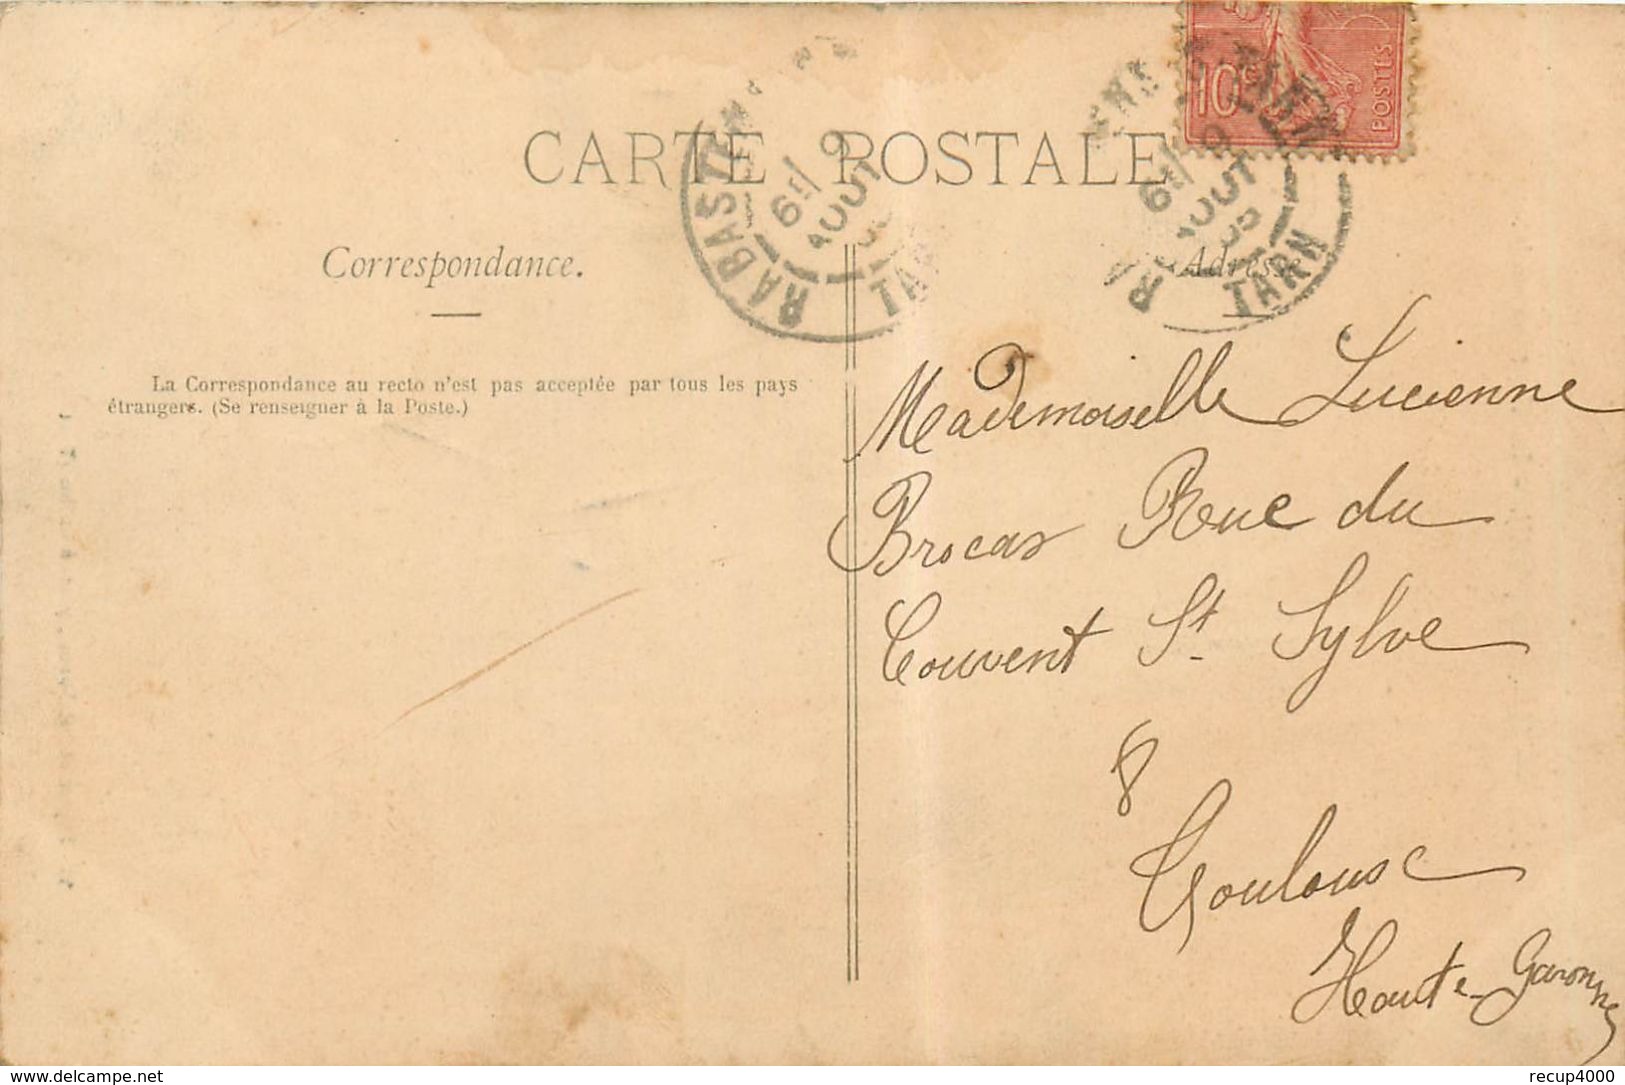 CARTE POSTALE
10c
POSTES
RABASTENS
6E 9
AOUT
TARN
6E 9
AOUT
TARN
Correspondance.
Adresse
La Correspondance au recto n'est pas acceptée par tous les pays
étrangers. (Se renseigner à la Poste.)
Mademoiselle Lucienne
Brocas Rue du
Couvent St. Sylve
8
Toulouse
Haute-Garonne
www.delcampe.net
recup4000